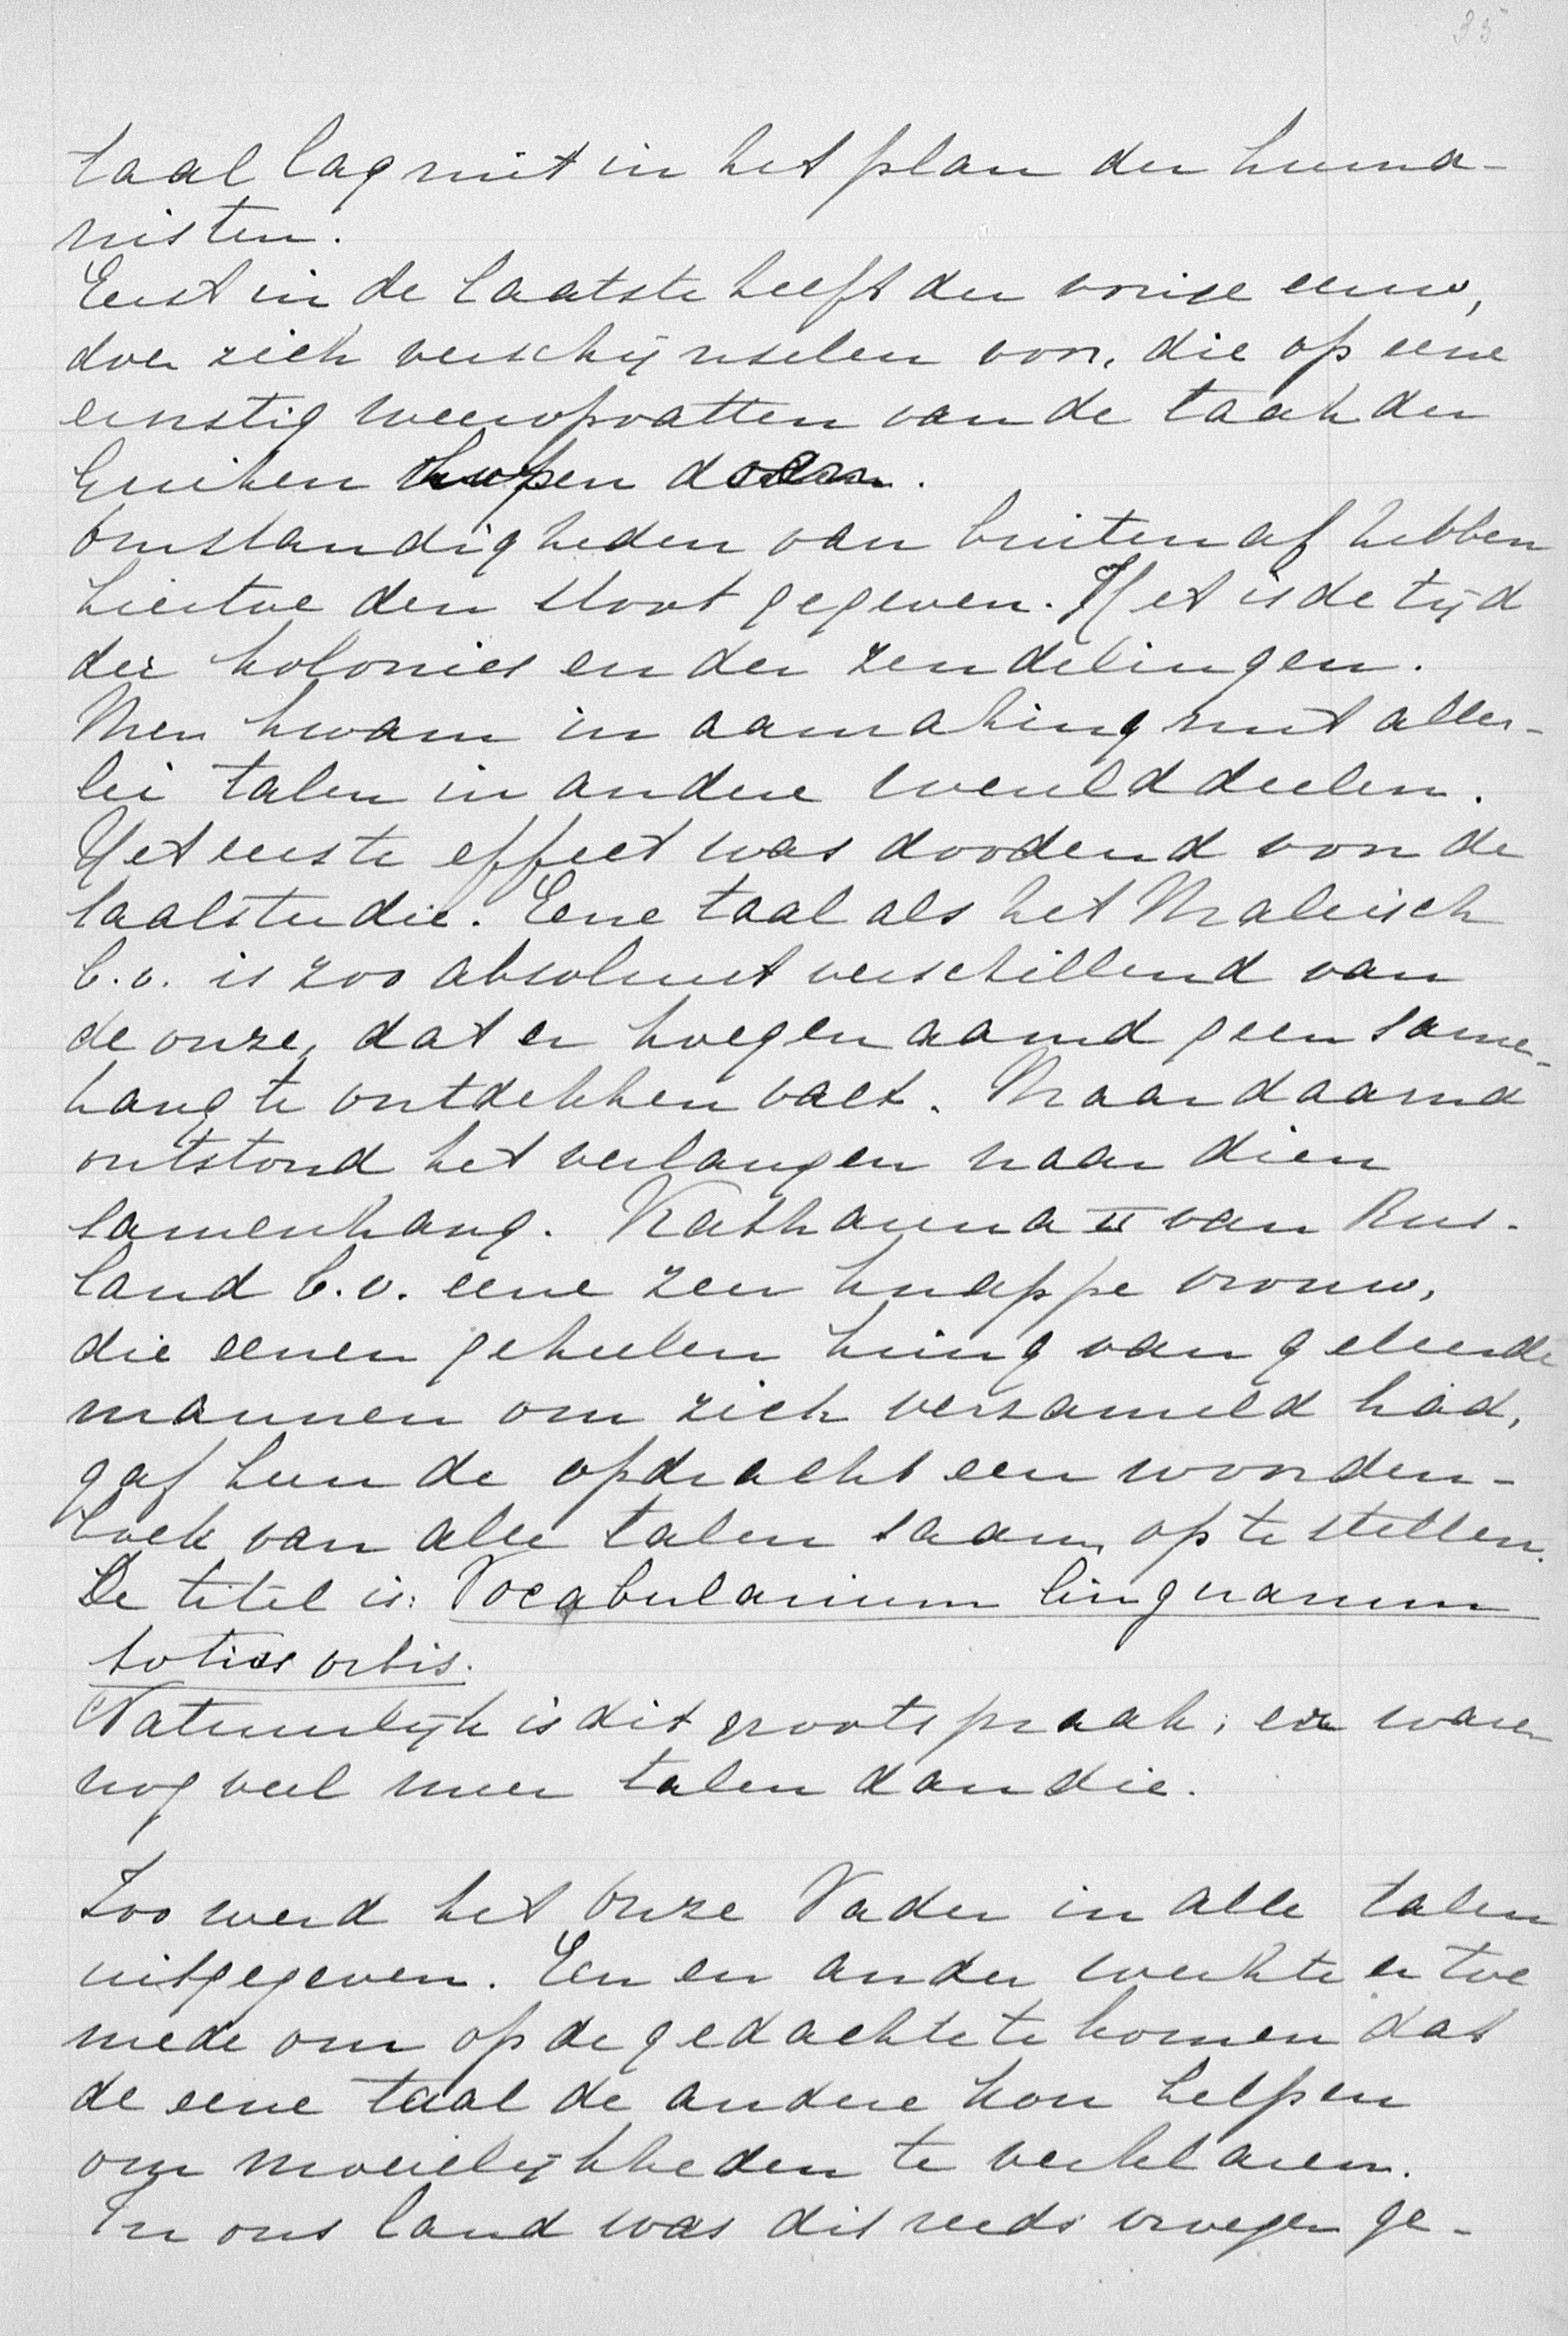 35
taal lag niet in het plan der huma-
nisten.
Eerst in de laatste helft der vorige eeuw,
doen zich verschijnselen voor, die op eene
ernstig weeropvatten van de taak der
Grieken hopen doen.
Omstandigheden van buiten af hebben
hiertoe den stoot gegeven. Het is de tijd
der kolonies en der zendelingen.
Men kwam in aanraking met aller-
lei talen in andere werelddeelen.
Het eerste effect was doodend voor de
taalstudie. Eene taal als het Maleisch
b.v. is zoo absoluut verschillend van
de onze, dat er hoegenaamd geen same-
hang te ontdekken valt. Maar daarna
ontstond het verlangen naar dien
samenhang. Katharina II van Rus-
land b.v. eene zeer knappe vrouw,
die eenen geheelen kring van geleerde
mannen om zich verzameld had,
gaf hun de opdracht een woorden-
boek van alle talen saam op te stellen.
De titel is: Vocabularium linguarum
totius orbis.
Natuurlijk is dit grootspraak; er waren
nog veel meer talen dan die.
Zoo werd het Onze Vader in alle talen
uitgegeven. Een en ander werkte er toe
mede om op de gedachte te komen dat
de eene taal de andere kon helpen
om moeielijkheden te verklaren.
In ons land was dit reeds vroeger ge-